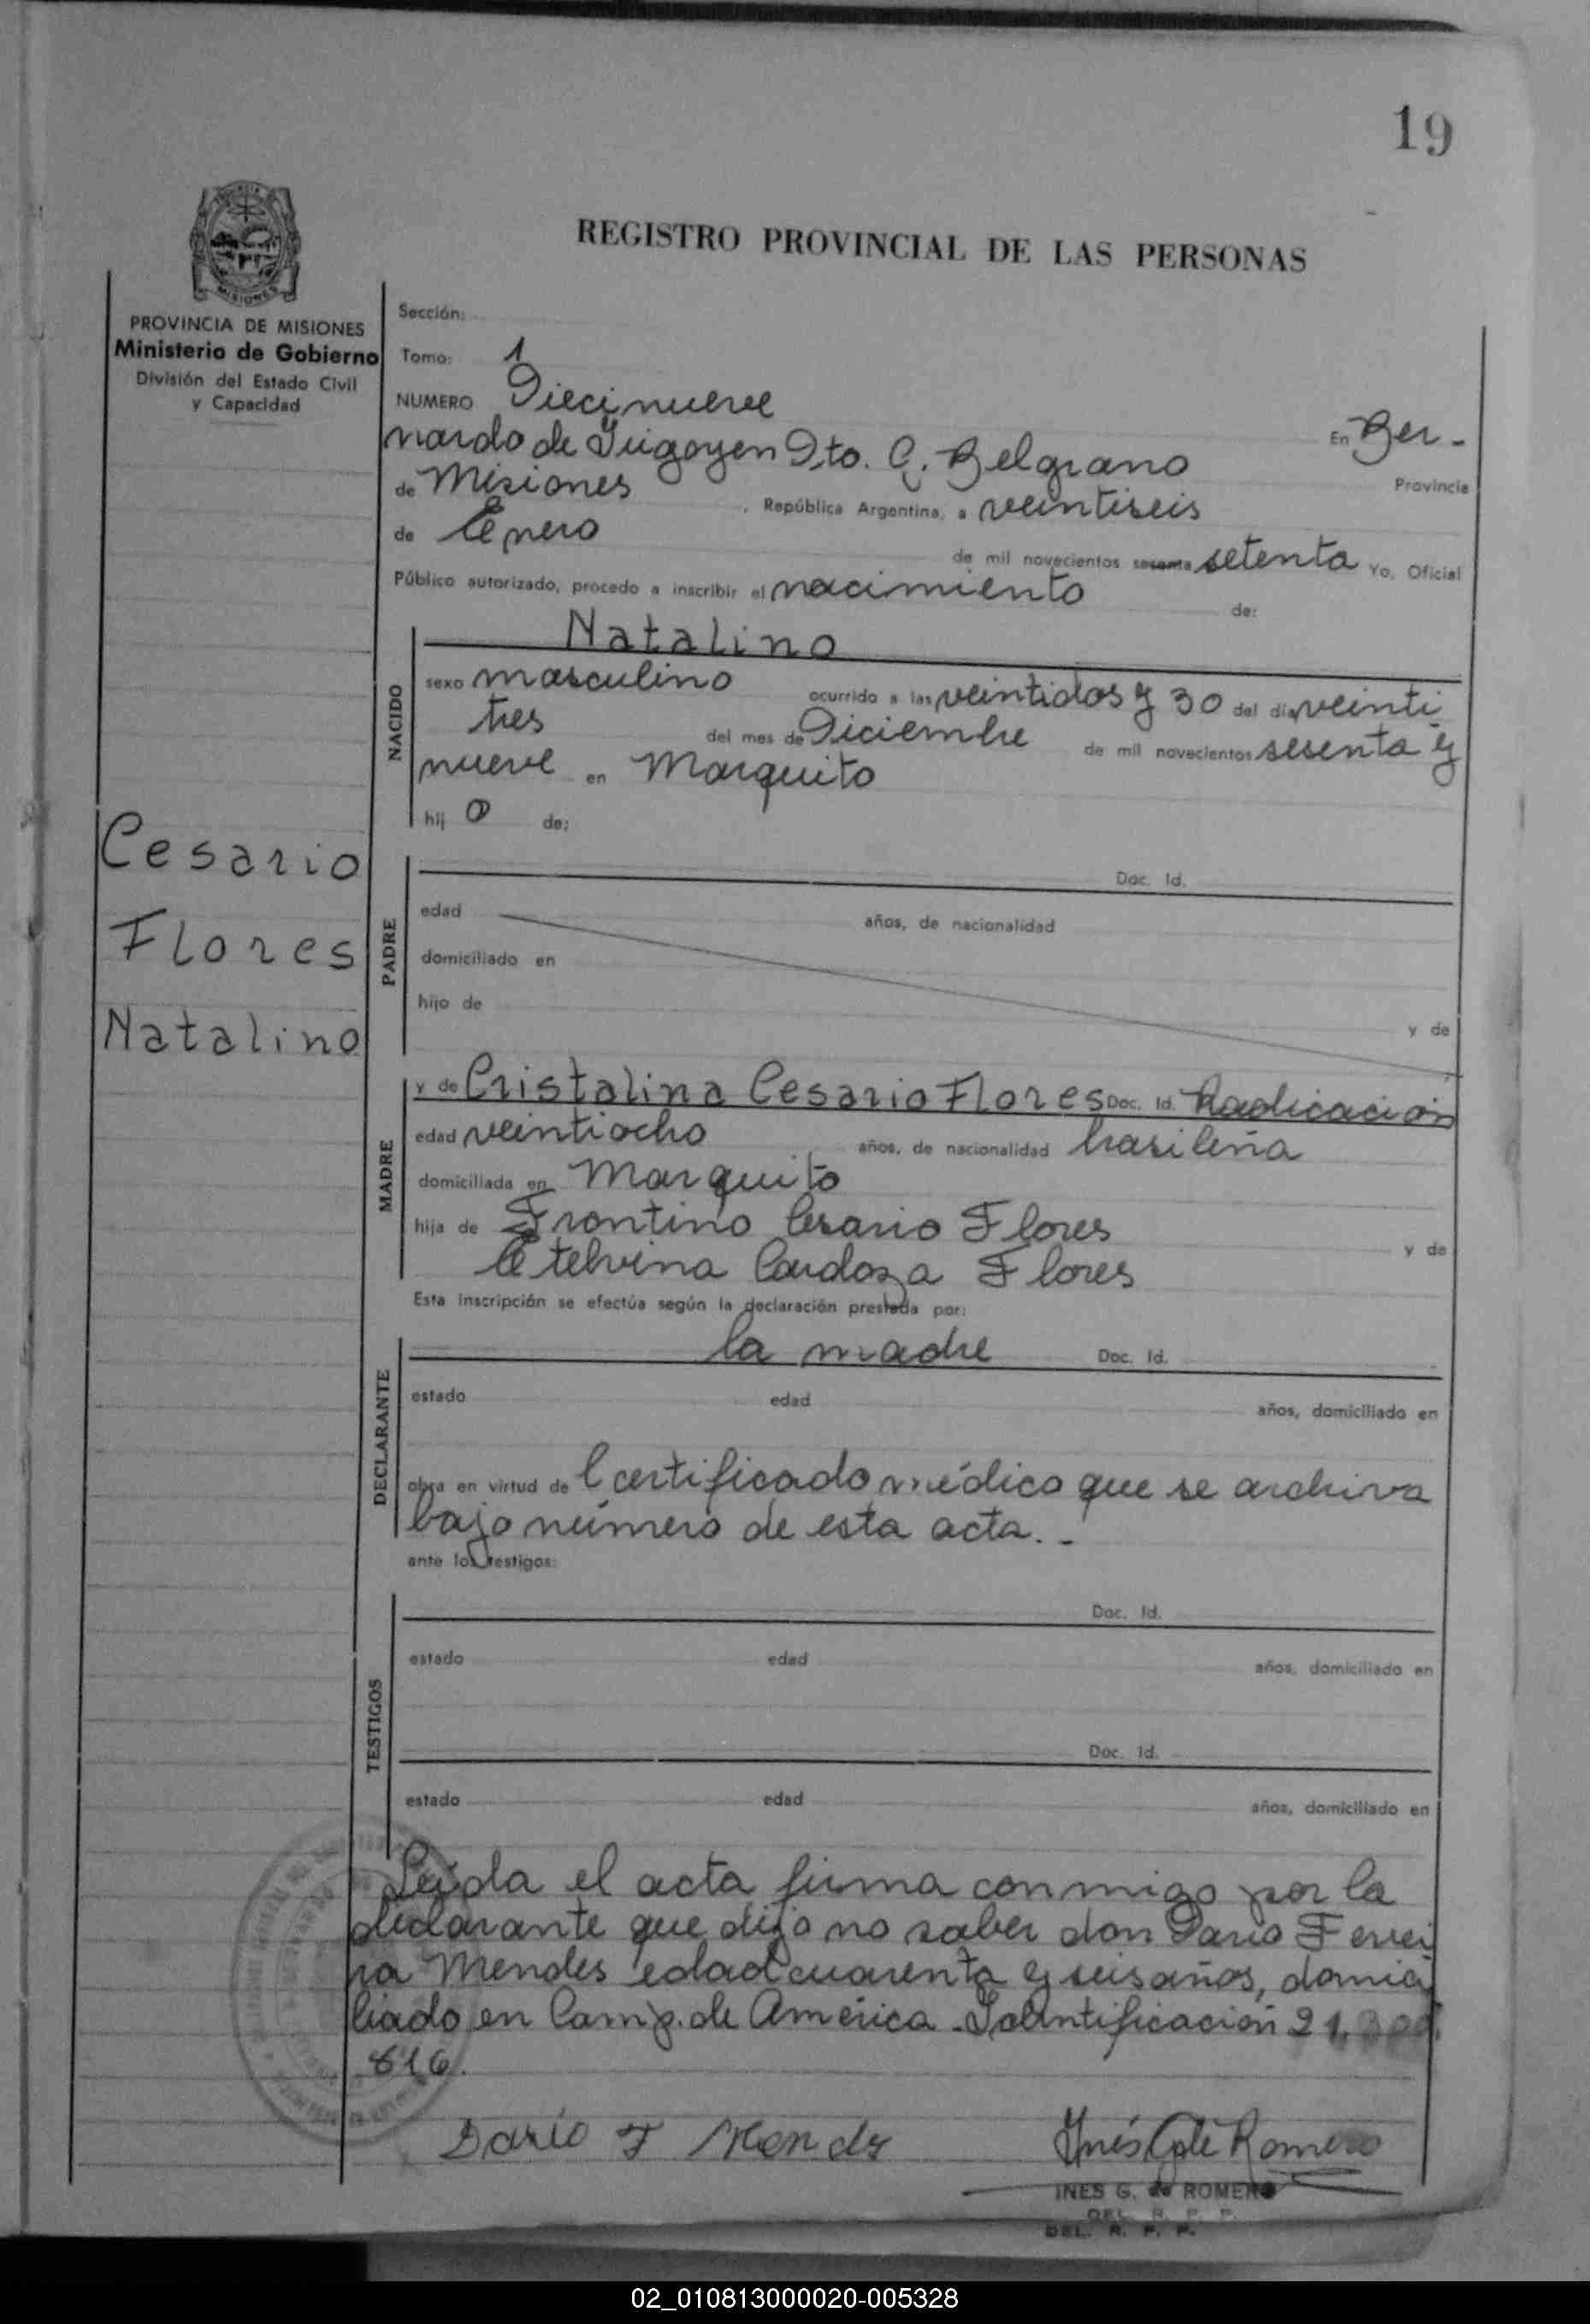 19
REGISTRO PROVINCIAL DE LAS PERSONAS
MISIONES
PROVINCIA DE MISIONES
Ministerio de Gobierno
División del Estado Civil
y Capacidad
Sección:
Tomo: 1
NUMERO Diecinueve
En Ber-
nardo de Irigoyen Dto. G. Belgrano
Provincia
de Misiones, República Argentina, a veintiseis
de Enero de mil novecientos sesenta setenta Yo, Oficial
Público autorizado, procedo a inscribir el nacimiento de:
NACIDO
Natalino
sexo masculino ocurrido a las veintidos y 30 del día veinti
tres del mes de Diciembre de mil novecientos sesenta y
nueve en Marquito
hij o de:
Cesario
Flores
Natalino
PADRE
Doc. Id.
edad años, de nacionalidad
domiciliado en
hijo de y de
MADRE
y de Cristalina Cesario Flores Doc. Id. Radicación
edad veintiocho años, de nacionalidad brasileña
domiciliada en Marquito
hija de Frontino Cesario Flores y de
Etelvina Cardoza Flores
Esta inscripción se efectúa según la declaración prestada por:
DECLARANTE
la madre Doc. Id.
estado edad años, domiciliado en
obra en virtud de l certificado médico que se archiva
bajo número de esta acta.-
ante los testigos:
TESTIGOS
Doc. Id.
estado edad años, domiciliado en
Doc. Id.
estado edad años, domiciliado en
Leída el acta firma conmigo por la
declarante que dijo no saber don Dario Ferrei
ra Mendes edad cuarenta y seis años, domici
liado en Comp. de América. Identificación
816.
Dario F Mendes
Inés G de Romero
INES G. de ROMERO
DEL. R. P. P.
DEL. R. P. P.
02_010813000020-005328